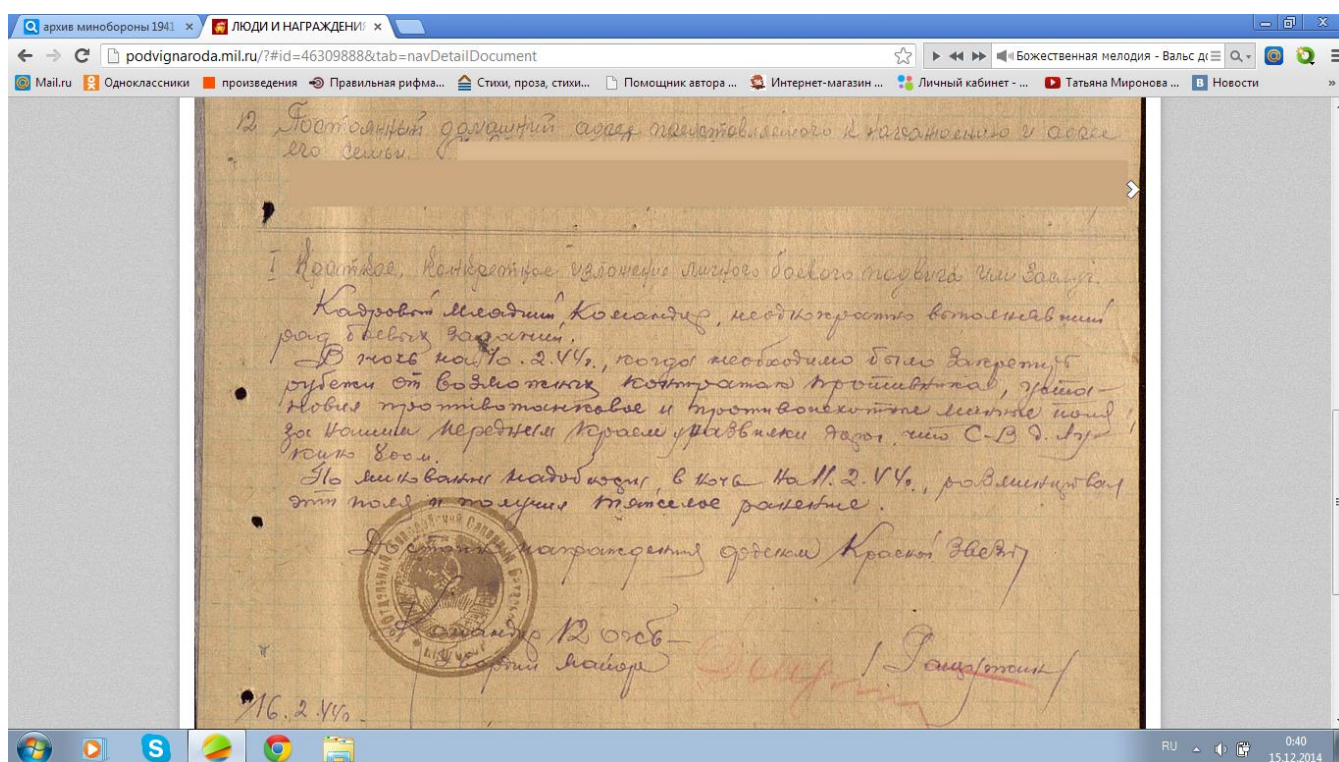 архив минобороны 1941
ЛЮДИ И НАГРАЖДЕНИ
podvignaroda.mil.ru/?#id=46309888&tab=navDetailDocument
Божественная мелодия - Вальс д
Mail.ru Одноклассники произведения Правильная рифма... Стихи, проза, стихи... Помощник автора ... Интернет-магазин ... Личный кабинет - ... Татьяна Миронова ... Новости
12 Постоянный домашний адрес представляемого к награждению и адрес
его семьи.
I Краткое, конкретное изложение личного боевого подвига или заслуг.
Кадровый младший командир, неоднократно выполнявший
ряд боевых заданий.
В ночь на 10.2.44г., когда необходимо было закрепить
рубежи от возможных контратак противника, уста-
новил противотанковое и противопехотное минные поля
за нашим передним краем развилки дорог, что С-В д.
800м.
надобности, в ночь на 11.2.44г., разминировал
эти поля и получил тяжелое ранение.
Достоин награждения орденом Красной Звезды
Командир 12 осб
Гвардии майор
16.2.44г.
RU 0:40
15.12.2014